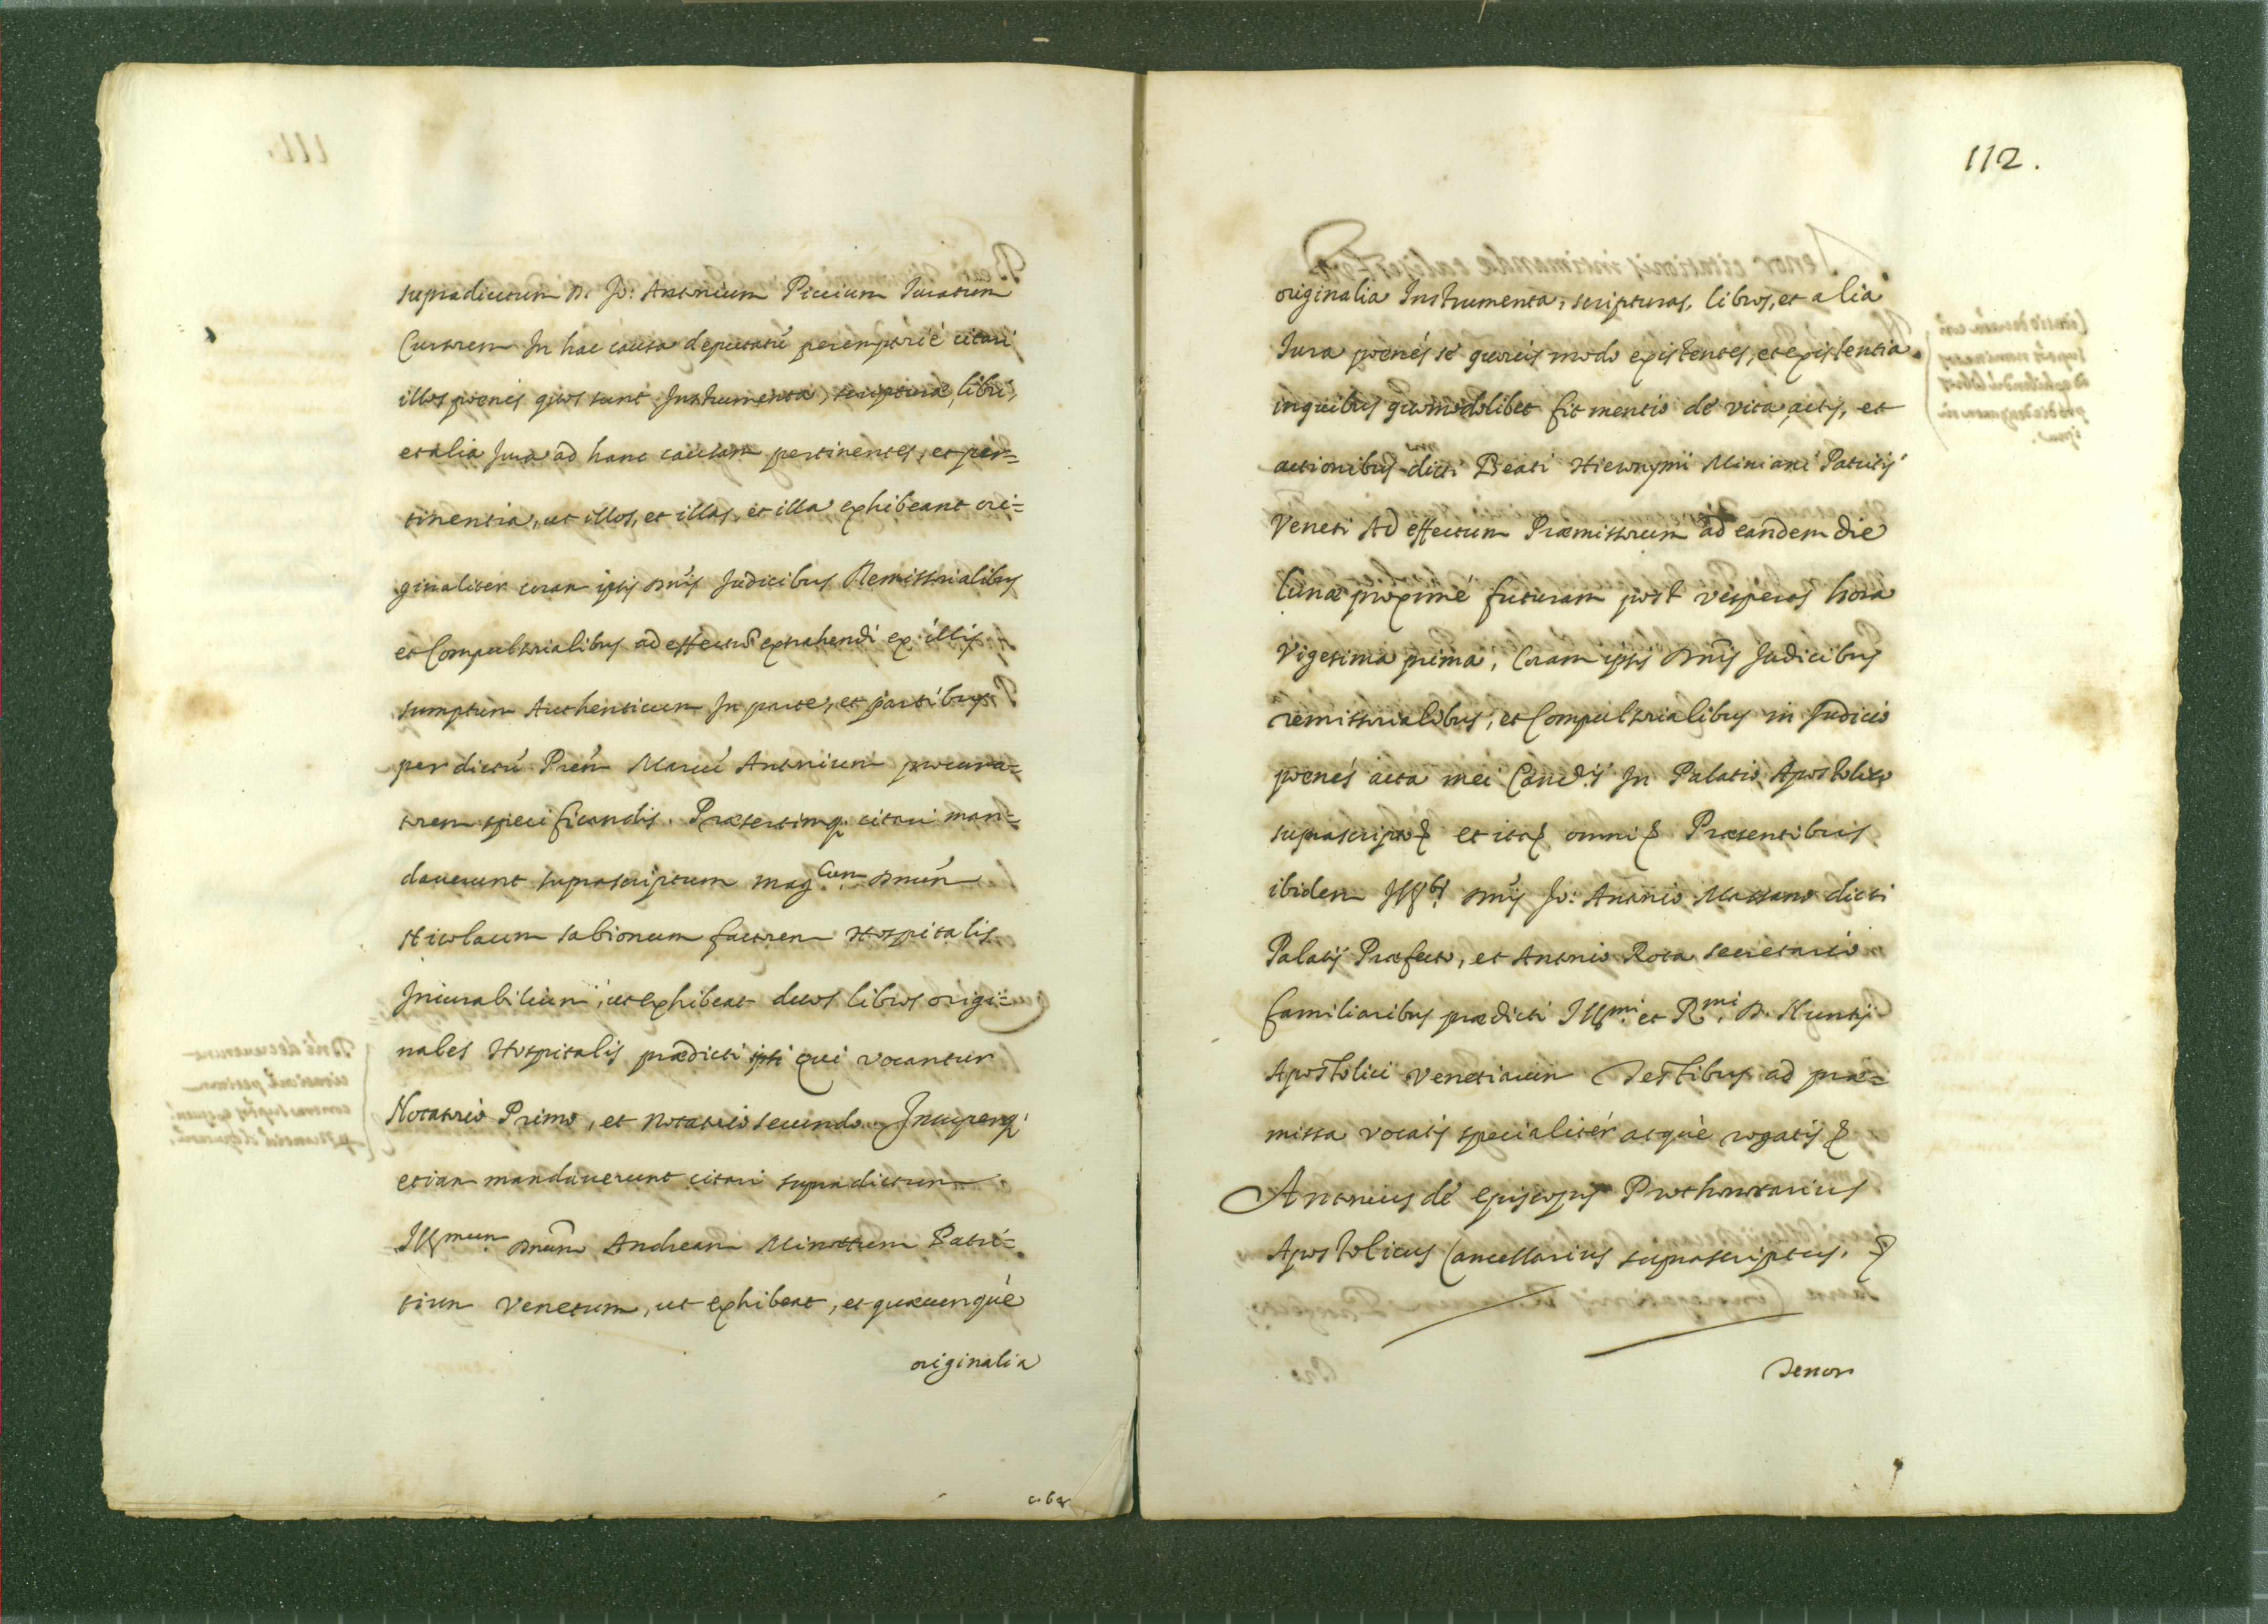 supradictum D. Jo: Antonium Piccium Juratum
Cursorem In hac causa deputatū peremptorié citari
illos poenes quos sunt Instrumenta, scripturæ, libri,
et alia Jura ad hanc causam pertinentes, et per=
tinentia, ut illos, et illas, et illa exhibeant ori=
ginaliter coran ipsis Dnīs Judicibus Remissorialibus
et Compulsorialibus ad effectū extrahendi ex illis
sumptum Authenticum In parte, et partibus
per dictū Prēm Marcū Antonium procura=
torem specificandis. Præsertimq. citari man=
dauerunt suprascriptum mag.cum Dnūm
Nicolaum sabionum factorem Hospitalis
Incurabilium, ut exhibeat duos libros origi=
nales Hospitalis prædicti qui vocantur
Notatorio Primo, et Notatorio secundo. Insuperq.
etiam mandauerunt citari supradictum
Illmum Dnūm Andream Minottum Patri=
tium Venetum, ut exhibeat, et quæcunquè
originalia
112.
originalia Instrumenta, scripturas, libros, et alia
Jura poenés sé quouis modo existentes, et existentia
inquibus quomodolibet fit mentio dé vita, actis, et
actionibus dicti Beati Hieronymi Miniani Patritij
Veneti Ad effectum Præmissorum ad eandem die
lunæ proximé futuram post vesperas hora
Vigesima prima, Coram ipsis Dnīs Judicibus
remissorialibus, et Compulsorialibus in Judicio
poenés acta mei Canc.ij In Palatio Apostolico
suprascripto et ita omni Præsentibus
ibidem Ill.bs Dnīs Jo: Antonio Massano dicti
Palatij Præfecto, et Antonio Rota secretario
familiaribus prædicti Illmi. et Rmi. D. Nuntij
Apostolici Venetiarum Testibus ad præ=
missa vocatis specialitér atquè rogatis
Antonius dé Episcopis Prothonotarius
Apostolicus Cancellarius suprascriptus,
Tenor